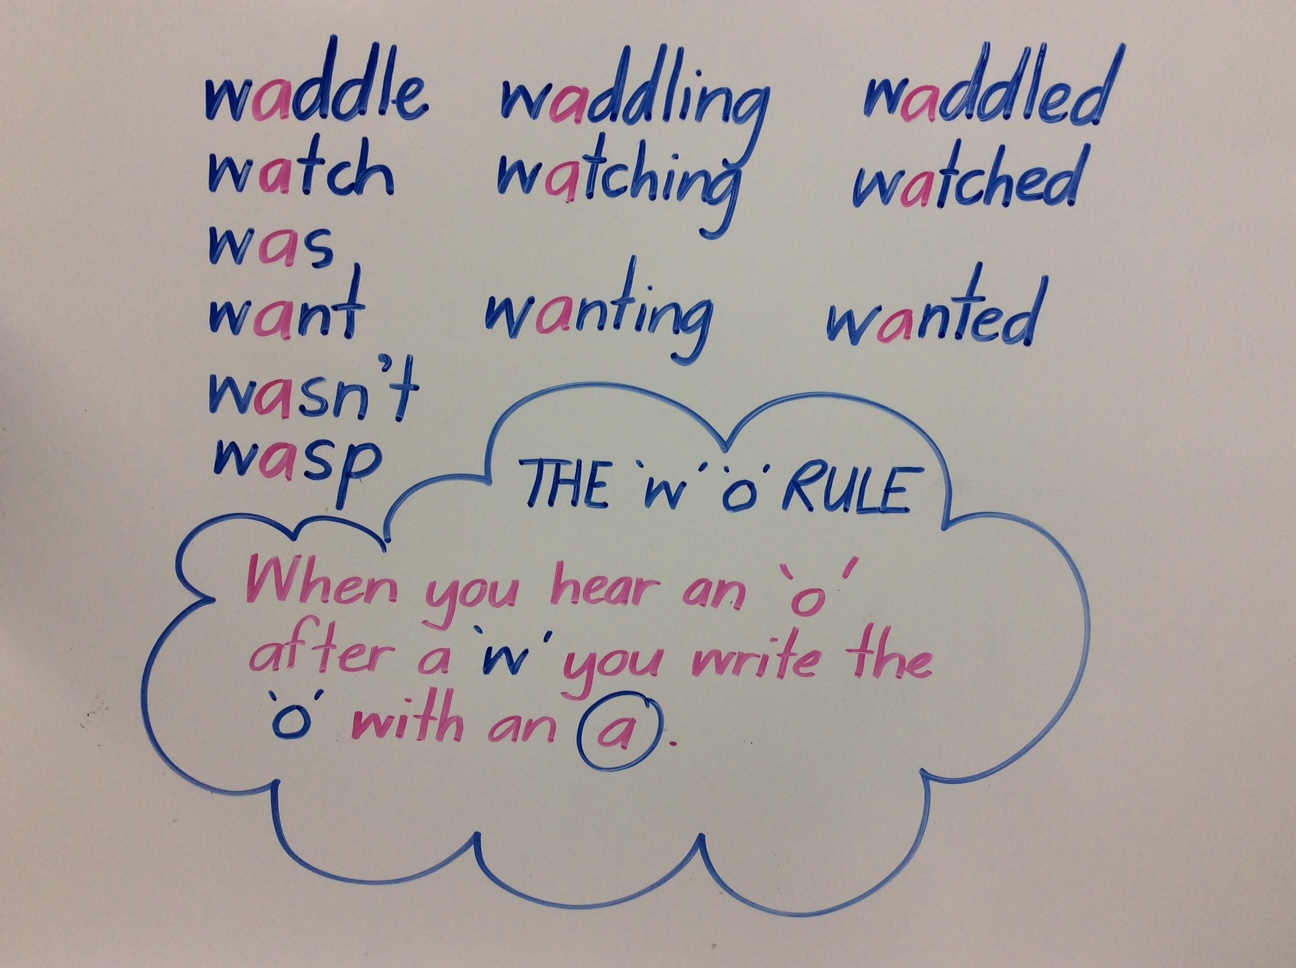 waddle waddling waddled
watch watching watched
was
want wanting wanted
wasn't
wasp
THE 'w' 'o' RULE
When you hear an 'o'
after a 'w' you write the
'o' with an a.